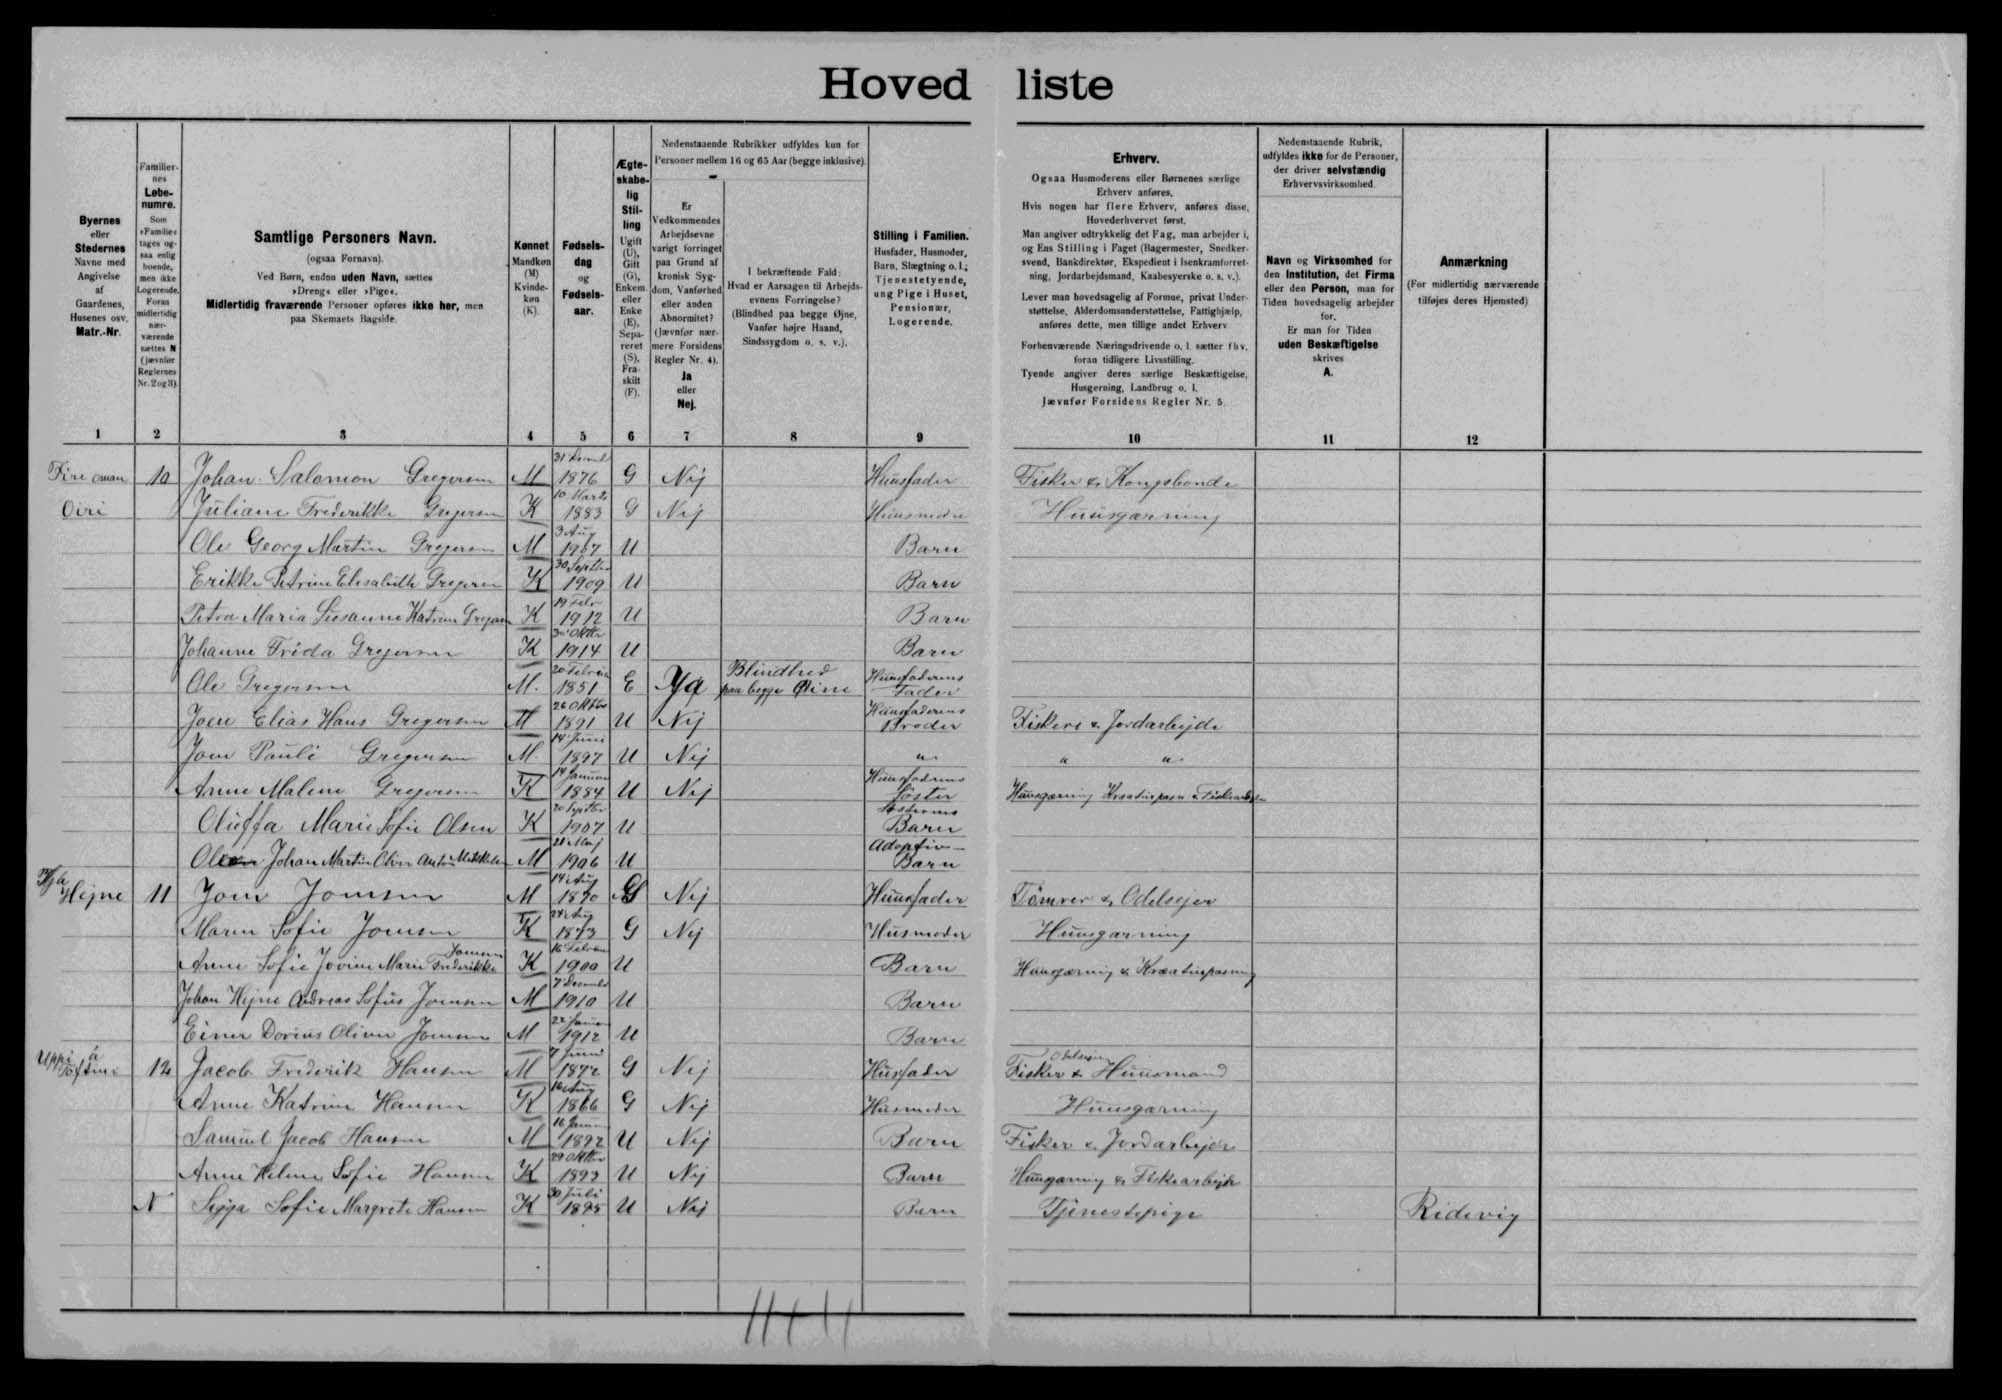 Hoved liste
Byernes
eller
Stedernes
Navne med
Angivelse
af
Gaardenes,
Husenes osv.
Matr.-Nr.
Familier-
nes
Løbe-
numre.
Som
»Familie«
tages og-
saa enlig
boende,
men ikke
Logerende.
Foran
midlertidig
nær-
værende
sættes N
(jævnfør
Reglernes
Nr. 2 og 3).
Samtlige Personers Navn.
(ogsaa Fornavn).
Ved Børn, endnu uden Navn, sættes
»Dreng« eller »Pige«.
Midlertidig fraværende Personer opføres ikke her, men
paa Skemaets Bagside.
Kønnet
Mandkøn
(M)
Kvinde-
køn
(K).
Fødsels-
dag
og
Fødsels-
aar.
Ægte-
skabe-
lig
Stil-
ling
Ugift
(U),
Gift
(G),
Enkem.
eller
Enke
(E),
Sepa-
reret
(S),
Fra-
skilt
(F).
Nedenstaaende Rubrikker udfyldes kun for
Personer mellem 16 og 65 Aar (begge inklusive).
Er
Vedkommendes
Arbejdsevne
varigt forringet
paa Grund af
kronisk Syg-
dom, Vanførhed
eller anden
Abnormitet?
(Jævnfør nær-
mere Forsidens
Regler Nr. 4).
Ja
eller
Nej.
I bekræftende Fald:
Hvad er Aarsagen til Arbejds-
evnens Forringelse?
(Blindhed paa begge Øjne,
Vanfør højre Haand,
Sindssygdom o. s. v.).
Stilling i Familien.
Husfader, Husmoder,
Barn, Slægtning o. l.;
Tjenestetyende,
ung Pige i Huset,
Pensionær,
Logerende.
Erhverv.
Ogsaa Husmoderens eller Børnenes særlige
Erhverv anføres.
Hvis nogen har flere Erhverv, anføres disse,
Hovederhvervet først.
Man angiver udtrykkelig det Fag, man arbejder i,
og Ens Stilling i Faget (Bagermester, Snedker-
svend, Bankdirektør, Ekspedient i Isenkramforret-
ning, Jordarbejdsmand, Kaabesyerske o. s. v.).
Lever man hovedsagelig af Formue, privat Under-
støttelse, Alderdomsunderstøttelse, Fattighjælp,
anføres dette, men tillige andet Erhverv.
Forhenværende Næringsdrivende o. l. sætter fhv.
foran tidligere Livsstilling.
Tyende angiver deres særlige Beskæftigelse,
Husgerning, Landbrug o. l.
Jævnfør Forsidens Regler Nr. 5.
Nedenstaaende Rubrik,
udfyldes ikke for de Personer,
der driver selvstændig
Erhvervsvirksomhed.
Navn og Virksomhed for
den Institution, det Firma
eller den Person, man for
Tiden hovedsagelig arbejder
for.
Er man for Tiden
uden Beskæftigelse
skrives
A.
Anmærkning
(For midlertidig nærværende
tilføjes deres Hjemsted)
1 2 3 4 5 6 7 8 9 10 11 12
10 Johan Salomon Gregersen M 31 1876 G Nej Huusfader Fisker & Kongsbonde
Oiri Juliane Frederikke Gregersen K 10 Marts 1883 G Nej Huusmoder Huusgærning
Ole Georg Martin Gregersen M 3 Aug 1907 U Barn
Erikke Petrine Elisabeth Gregersen K 30 Septbr 1909 U Barn
Petra Maria Susanne Katrine Gregersen K 19 Febr 1912 U Barn
Johanne Frida Gregersen K 30 Oktbr 1914 U Barn
Ole Gregersen M. 20 Februar 1851 E Ja Blindhed paa begge Øine Huusfaderens Fader
Joen Elias Hans Gregersen M 26 Oktbr 1891 U Nej Huusfaderens Broder Fiskere & Jordarbejde
Joen Pauli Gregersen M. 14 Juni 1897 U Nej " " "
Anne Malene Gregersen K 14 Januar 1884 U Nej Huusfaderens Søster Huusgærning Kreaturpasn & Fiskearbejde
Olieffa Marie Sofie Olsen K 20 Septbr 1907 U Søsterens Barn
Johan Martin Oliver Anton Mikkelsen M 21 Maj 1906 U Adoptiv- Barn
Hejne 11 Joen Joensen M 14 Aug 1870 G Nej Huusfader Tømrer & Odelsejer
Maren Sofie Joensen K 24 Aug 1873 G Nej Husmoder Huusgærning
Anne Sofie Jovine Marie Frederikke Joensen K 16 Februar 1900 U Barn Huusgærning & Kreaturpasning
Johan Hejne Andreas Sofus Joensen M 7 Decembr 1910 U Barn
Einer Dorius Oliver Joensen M 22 Januar 1912 U Barn
Uppi á 12 Jacob Frederik Hansen M 7 Juni 1872 G Nej Husfader Fisker & Odelsejer Huusmand
Anne Katrine Hansen K 16 Aug 1866 G Nej Husmoder Huusgærning
Samuel Jacob Hansen M 16 Januar 1892 U Nej Barn Fisker & Jordarbejder
Anne Helene Sofie Hansen K 29 Oktbr 1893 U Nej Barn Huusgærning & Fiskearbejde
N Sigga Sofie Margrete Hansen K 30 Juli 1895 U Nej Barn Tjenestepige Ridevig